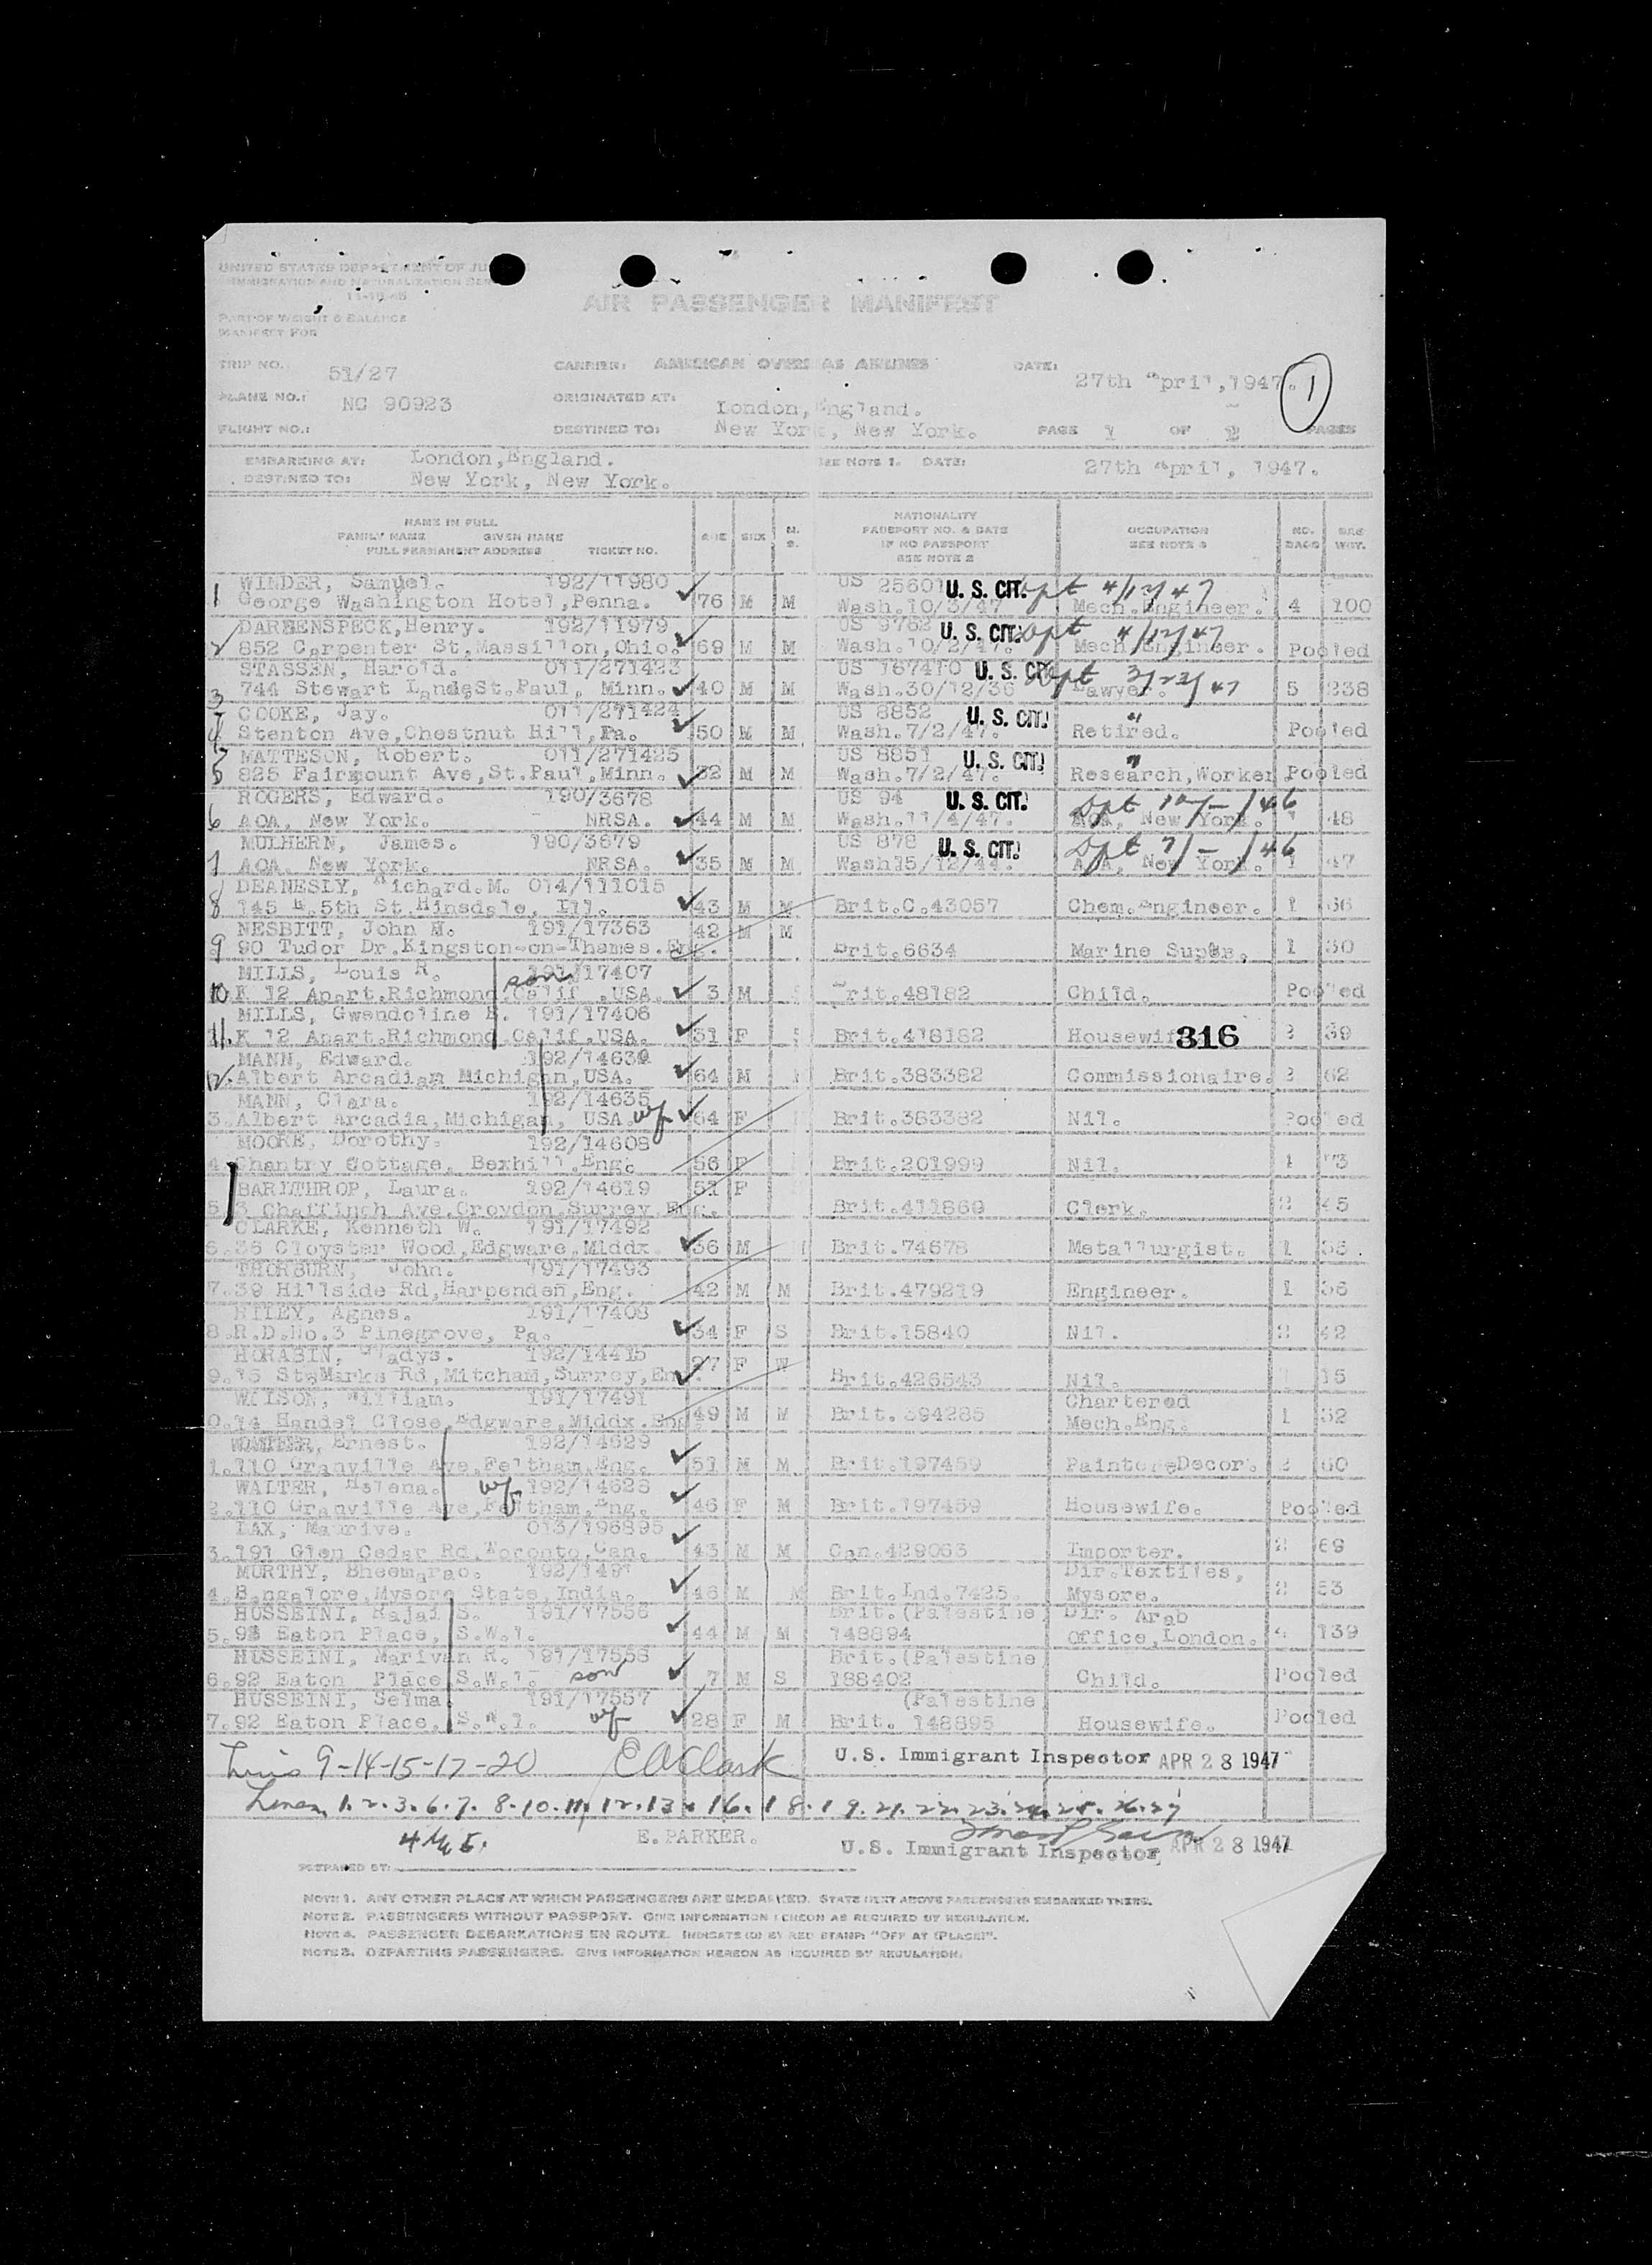 UNITED STATES DEPARTMENT OF JU
IMMIGRATION AND NATURALIZATION SER
11-15-45
PART OF WEIGHT & BALANCE
MANIFEST FOR
AIR PASSENGER MANIFEST
TRIP NO. 51/27 CARRIER: AMERICAN OVERSEAS AIRLINES DATE: 27th April, 1947. 1
PLANE NO.: NC 90923 ORIGINATED AT: London, England.
FLIGHT NO.: DESTINED TO: New York, New York. PAGE 1 OF 2 PAGES
EMBARKING AT: London, England. SEE NOTE 1. DATE: 27th April, 1947.
DESTINED TO: New York, New York.
NAME IN FULL
FAMILY NAME GIVEN NAME
FULL PERMANENT ADDRESS TICKET NO. AGE SEX M. S. NATIONALITY PASSPORT NO. & DATE IF NO PASSPORT SEE NOTE 2 OCCUPATION SEE NOTE 3 NO. BAGS BAG WGT.
WINDER, Samuel. 192/11980 US 25601 U. S. CIT. dpt 4/12/47
1 George Washington Hotel, Penna. 76 M M Wash.10/3/47 Mech.Engineer. 4 100
DARRENSPECK, Henry. 192/11979 US 9762 U. S. CIT. dpt 4/12/47
2 852 Carpenter St, Massillon, Ohio. 69 M M Wash.10/2/47. Mech.Engineer. Pooled
STASSEN, Harold. 011/271423 US 167410 U. S. CIT. dpt
3 744 Stewart Lande St.Paul, Minn. 40 M M Wash.30/12/36 Lawyer. 5 238
COOKE, Jay. 011/271424 US 8852 U. S. CIT. "
4 Stenton Ave, Chestnut Hill, Pa. 50 M M Wash.7/2/47. Retired. Pooled
MATTESON, Robert. 011/271425 US 8851 U. S. CIT. "
5 825 Fairmount Ave, St.Paul, Minn. 32 M M Wash.7/2/47. Research, Worker Pooled
ROGERS, Edward. 190/3678 US 94 U. S. CIT. dpt 12/-/46
6 AOA, New York. NRSA. 44 M M Wash.11/4/47. AOA, New York. 1 48
MULHERN, James. 190/3679 US 878 U. S. CIT. dpt 7/-/46
7 AOA, New York. NRSA. 35 M M Wash15/12/44. AOA, New York. 1 47
DEANESLY, Richard.M. 014/111015
8 145 E.5th St.Hinsdale, Ill. 43 M M Brit.C.43057 Chem.Engineer. 1 66
NESBITT, John H. 191/17363 42 M M
9 90 Tudor Dr.Kingston-on-Thames.Eng. Brit.6634 Marine Supt. 1 30
MILLS, Louis R. son 191/17407
10. K 12 Apart.Richmond, Calif.USA. 3 M S Brit.48182 Child. Pooled
MILLS, Gwendoline E. 191/17406
11. K 12 Apart.Richmond, Calif.USA. 31 F Brit.418182 Housewif 316 39
MANN, Edward. 192/14634
12. Albert Arcadian Michigan, USA. 64 M Brit.383382 Commissionaire. 62
MANN, Clara. 192/14635
3. Albert Arcadia, Michigan, USA. wf 64 F Brit.363382 Nil. Pooled
MOORE, Dorothy. 192/14608
4. Chantry Cottage, Bexhill.Eng. 56 F Brit.201999 Nil. 1
BARITHROP, Laura. 192/14619 51 F
5. 3 Chaffinch Ave, Croydon, Surrey Eng. Brit.411869 Clerk. 2 45
CLARKE, Kenneth W. 191/17492
6. 36 Cloyster Wood, Edgware, Middx. 36 M Brit.74678 Metallurgist. 1 35
THORBURN, John. 191/17493
7. 39 Hillside Rd, Harpenden, Eng. 42 M M Brit.479219 Engineer. 1 36
RILEY, Agnes. 191/17408
8. R.D.No.3 Pinegrove, Pa. 34 F S Brit.15840 Nil. 2 42
HORABIN, Gladys. 192/14415
9. 15 St.Marks Rd, Mitcham, Surrey, Eng. 27 F W Brit.426543 Nil. 15
WILSON, William. 191/17491 Chartered
0. 14 Handel Close, Edgware, Middx.Eng. 49 M M Brit.394285 Mech.Eng. 1 32
Ernest. 192/14629
1. 110 Granville Ave, Feltham, Eng. 51 M M Brit.197459 Painter Decor. 2 60
WALTER, Helena. wf 192/14628
2. 110 Granville Ave, Feltham, Eng. 46 F M Brit.197459 Housewife. Pooled
LAX, Maurive. 013/196895
3. 191 Glen Cedar Rd. Toronto, Can. 43 M M Can.429063 Importer. 2 69
MURTHY, Bheemarao. 192/1491 Dir.Textiles,
4. Bangalore, Mysore State, India. 46 M M Brit.Ind.7425. Mysore. 2 53
HUSSEINI, Rajai S. 191/17556 Brit.(Palestine) Dir. Arab
5. 93 Eaton Place, S.W.1. 44 M M 148894 Office, London. 4 139
HUSSEINI, Marivan R. 191/17558 Brit.(Palestine
6. 92 Eaton Place S.W.1. son 7 M S 188402 Child. Pooled
HUSSEINI, Selma. 191/17557 (Palestine
7. 92 Eaton Place, S.W.1. wf 28 F M Brit. 148895 Housewife. Pooled
Lines 9-14-15-17-20 E A Clark U.S. Immigrant Inspector APR 28 1947
Lines 1.2.3.6.7.8.10.11.12.13.16.18.19.21.22.23.24.25.26.27
4 & 5. E. PARKER. U.S. Immigrant Inspector APR 28 1947
PREPARED BY:
NOTE 1. ANY OTHER PLACE AT WHICH PASSENGERS ARE EMBARKED. STATE NEXT ABOVE PASSENGERS EMBARKED THERE.
NOTE 2. PASSENGERS WITHOUT PASSPORT. GIVE INFORMATION HEREON AS REQUIRED BY REGULATION.
NOTE 4. PASSENGER DEBARKATIONS EN ROUTE. INDICATE (D) BY RED STAMP: "OFF AT (PLACE)".
NOTE 3. DEPARTING PASSENGERS. GIVE INFORMATION HEREON AS REQUIRED BY REGULATION.